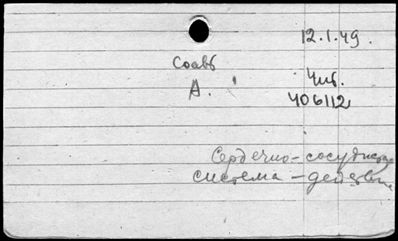 12.1.49.
Соавт
А.
Чит.
406112
Сердечно-сосудистая
система - действие